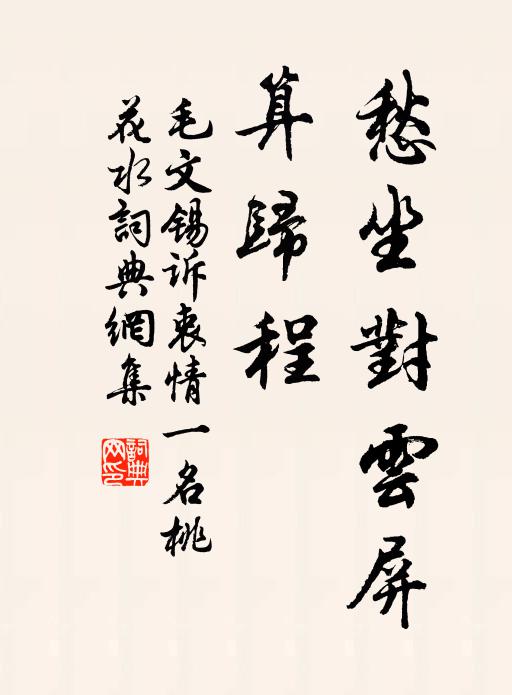 愁坐對雲屏
算歸程
毛文锡訴衷情一名桃
花水詞典網集
詞典
网印